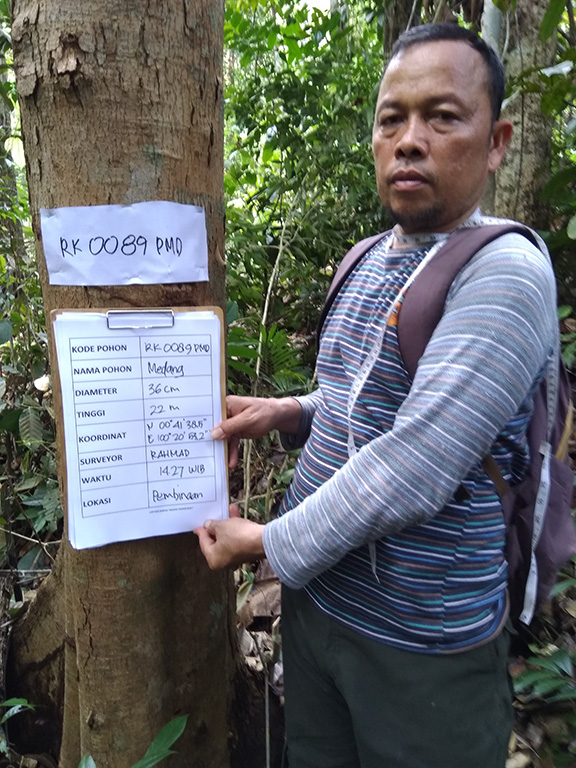 RK 0089 PMD
KODE POHON RK 0089 PMD
NAMA POHON Medang
DIAMETER 36 cm
TINGGI 22 m
KOORDINAT N 00°41'38.5"
E 100°20'53.2"
SURVEYOR RAHMAD
WAKTU 1427 WIB
LOKASI Pembinaan